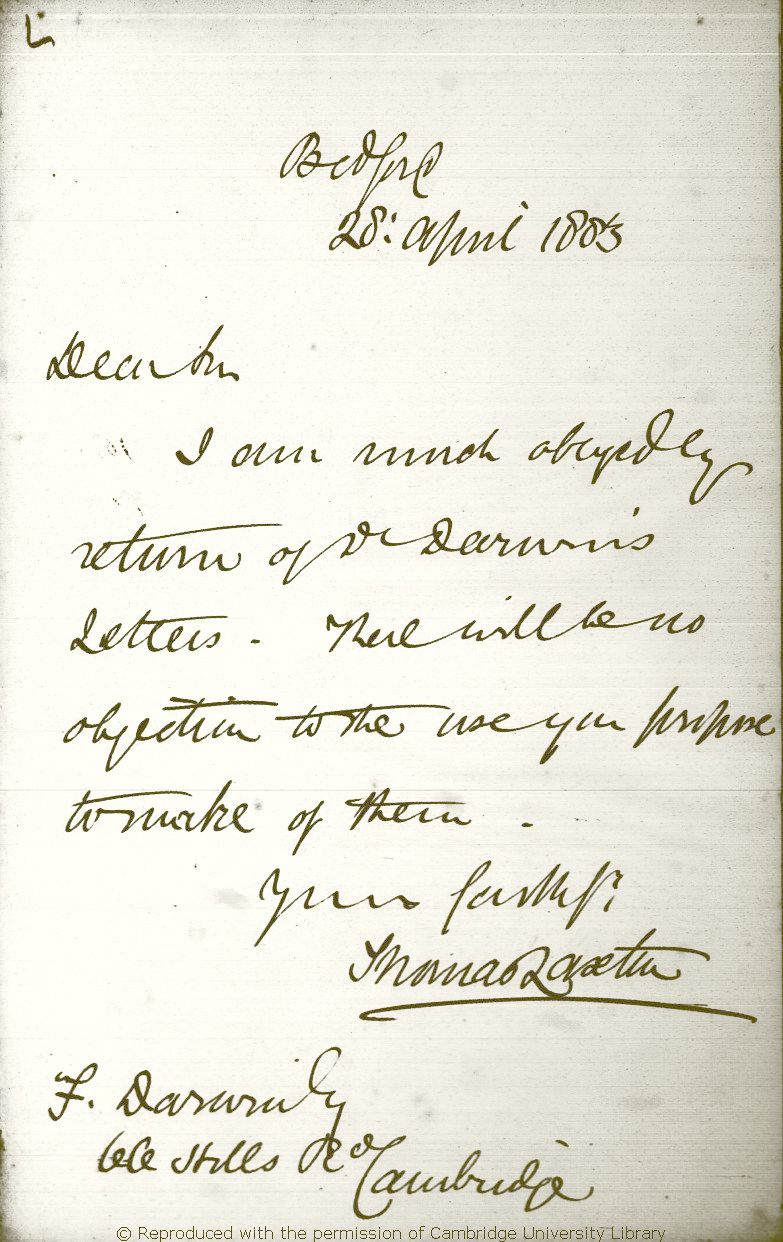 L
Bedford
28: April 1883
Dear Sir
I am much obliged by
return of Dr Darwin's
Letters. There will be no
objection to the use you propose
to make of them.
Yours faithfy
Thomas Laxton
F. Darwin Esq
66 Hills Rd Cambridge
© Reproduced with the permission of Cambridge University Library